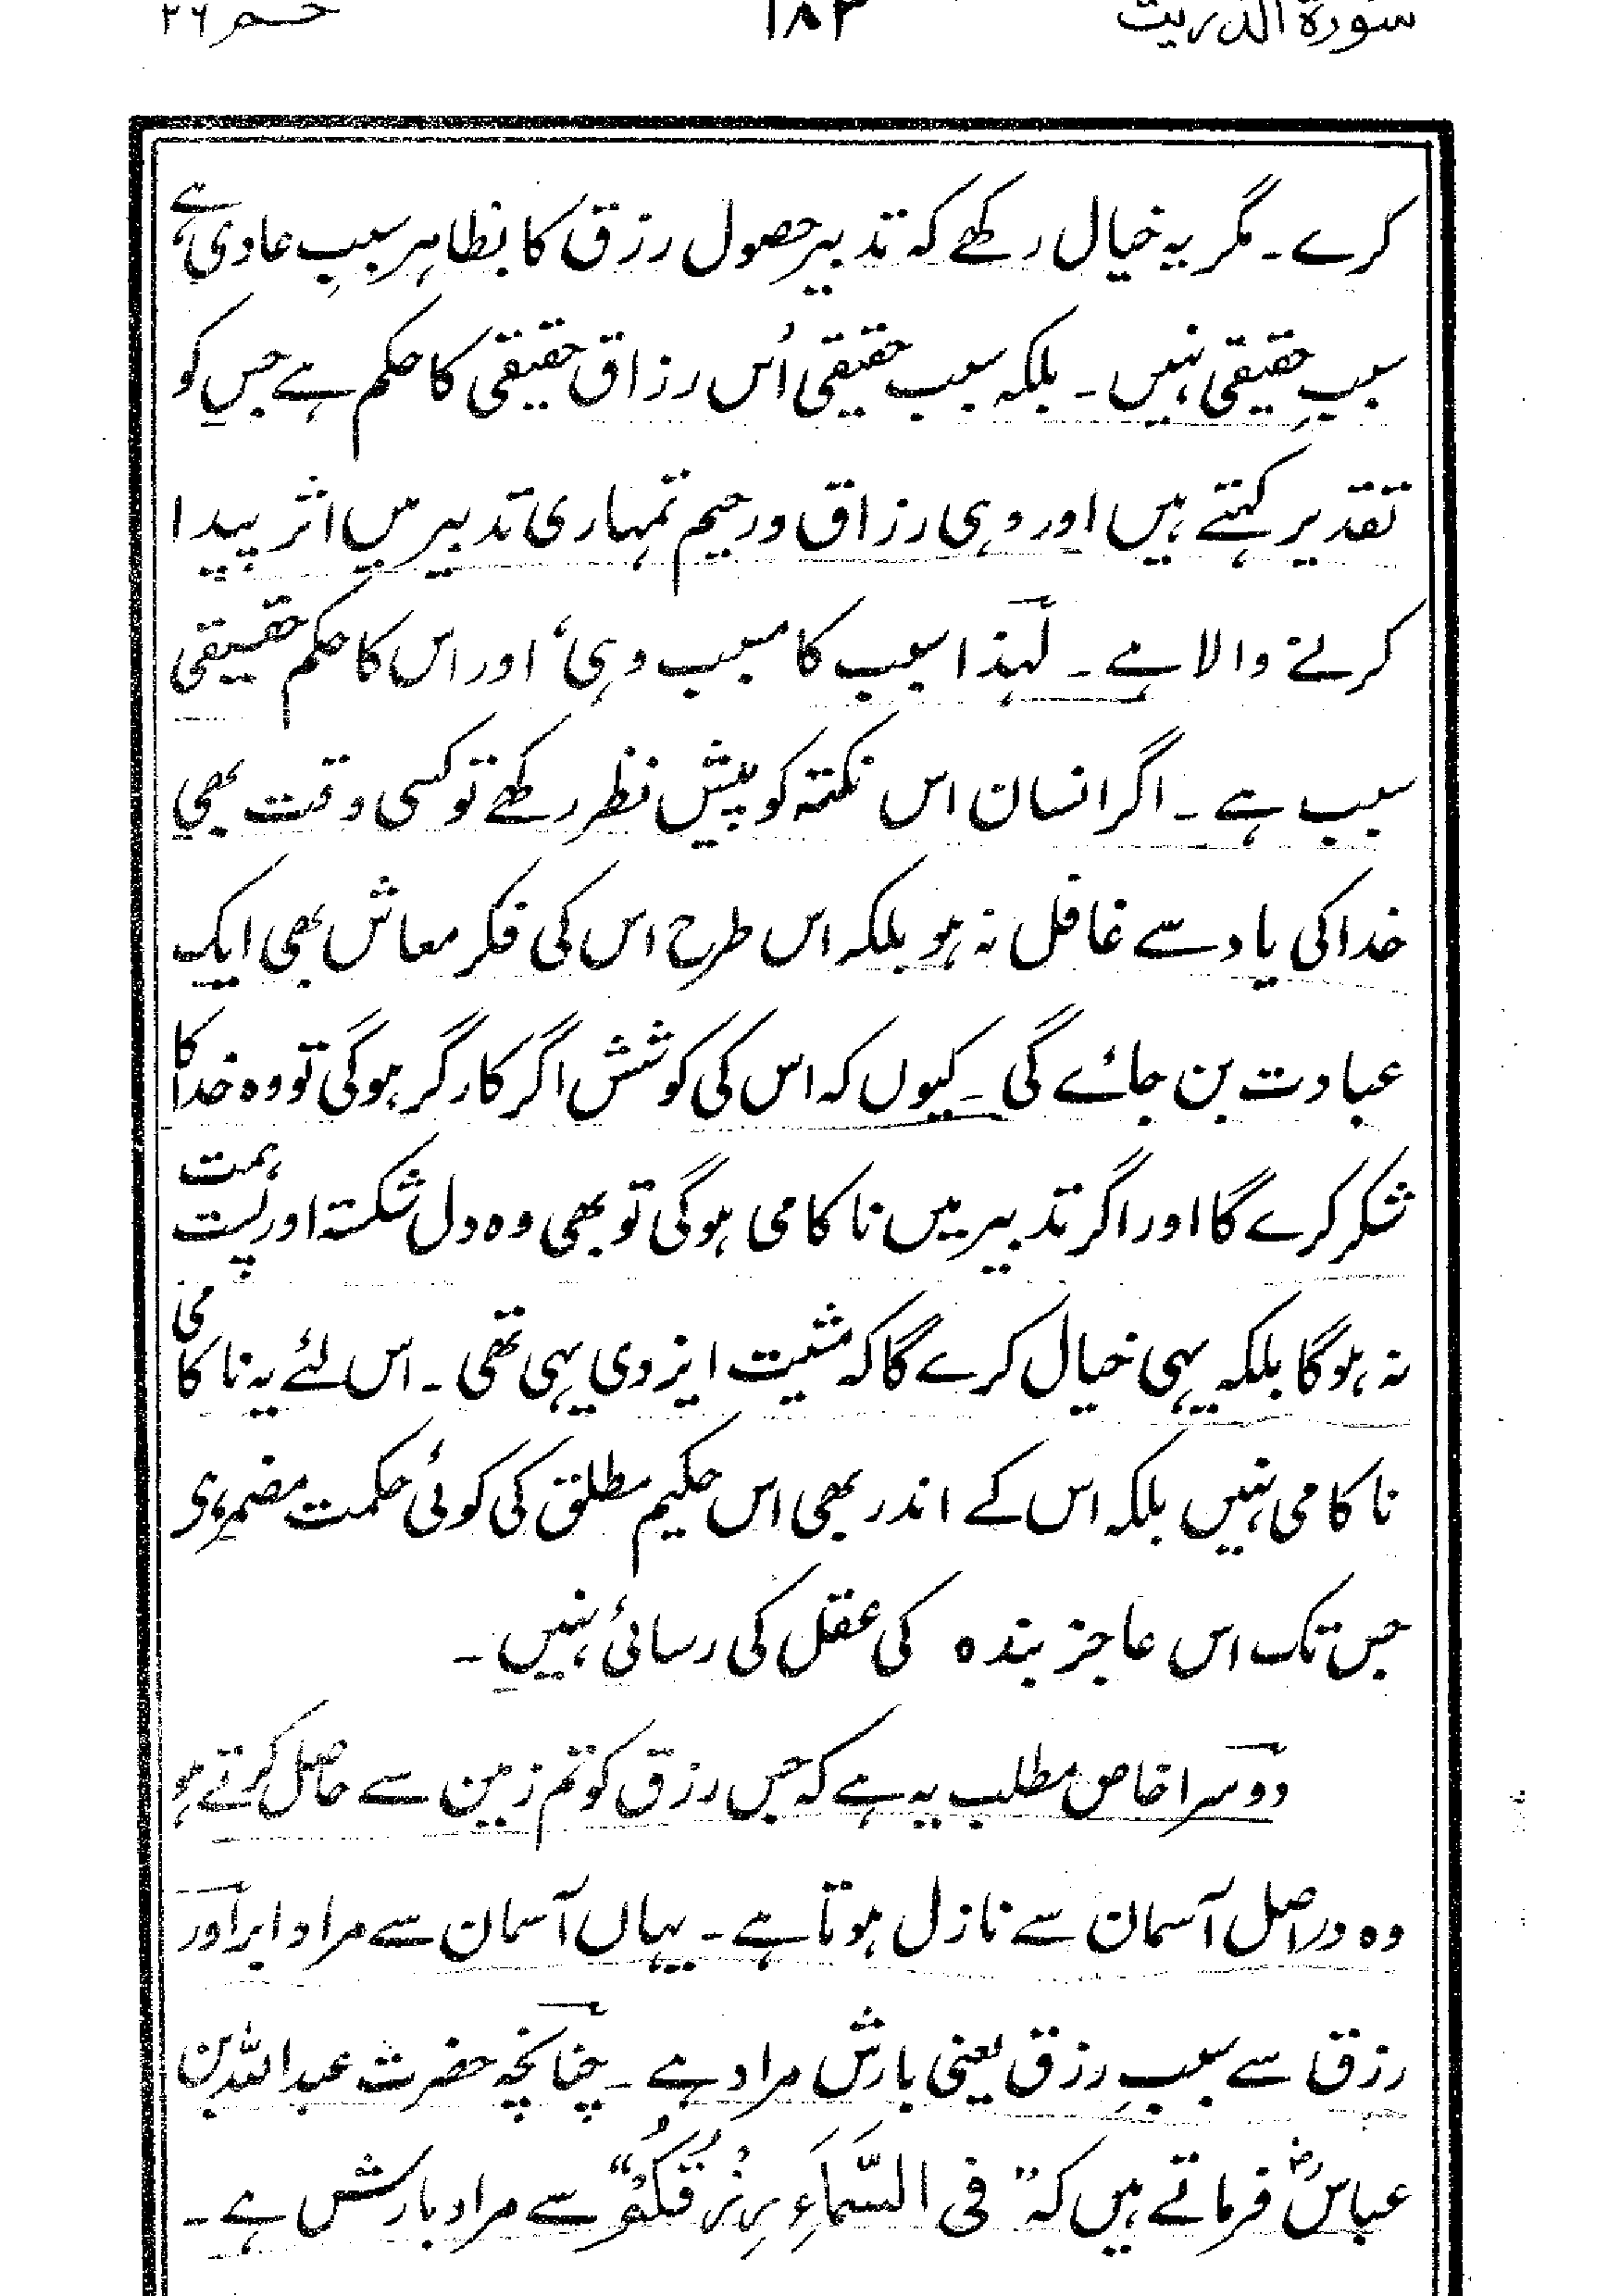 سورة الذریت ۱۸۳ حٰم ۲۶
کرے ۔ مگر یہ خیال رکھے کہ تدبیر حصول رزق کا بظاہر سببِ عادی ہے،
سببِ حقیقی نہیں ۔ بلکہ سبب حقیقی اُس رزاق حقیقی کا حکم ہے جس کو
تقدیر کہتے ہیں اور وہی رزاق ورحیم تمہاری تدبیر میں اثر پیدا
کرنے والا ہے ۔ لہٰذا سبب کا مسبب وہی، اور اس کا حکم حقیقی
سبب ہے ۔ اگر انسان اس نکتہ کو پیش نظر رکھے تو کسی وقت بھی
خدا کی یاد سے غافل نہ ہو بلکہ اس طرح اس کی فکر معاش بھی ایک
عبادت بن جائے گی ۔ کیوں کہ اس کی کوشش اگر کارگر ہوگی تو وہ خدا کا
شکر کرے گا اور اگر تدبیر میں ناکامی ہوگی تو بھی وہ دل شکستہ اور پست ہمت
نہ ہوگا بلکہ یہی خیال کرے گا کہ مشیت ایزدی یہی تھی ۔ اس لئے یہ ناکامی
ناکامی نہیں بلکہ اس کے اندر بھی اس حکیم مطلق کی کوئی حکمت مضمر ہوی
جس تک اس عاجز بندہ کی عقل کی رسائی نہیں ۔
دوسرا خاص مطلب یہ ہے کہ جس رزق کو تم زمین سے حاصل کرتے ہو
وہ دراصل آسمان سے نازل ہوتا ہے ۔ یہاں آسمان سے مراد ابر اور
رزق سے سببِ رزق یعنی بارش مراد ہے ۔ چنانچہ حضرت عبداللہ بن
عباسؓ فرماتے ہیں کہ " فی السَّمَاءِ رِزْقُكُمْ " سے مراد بارش ہے ۔